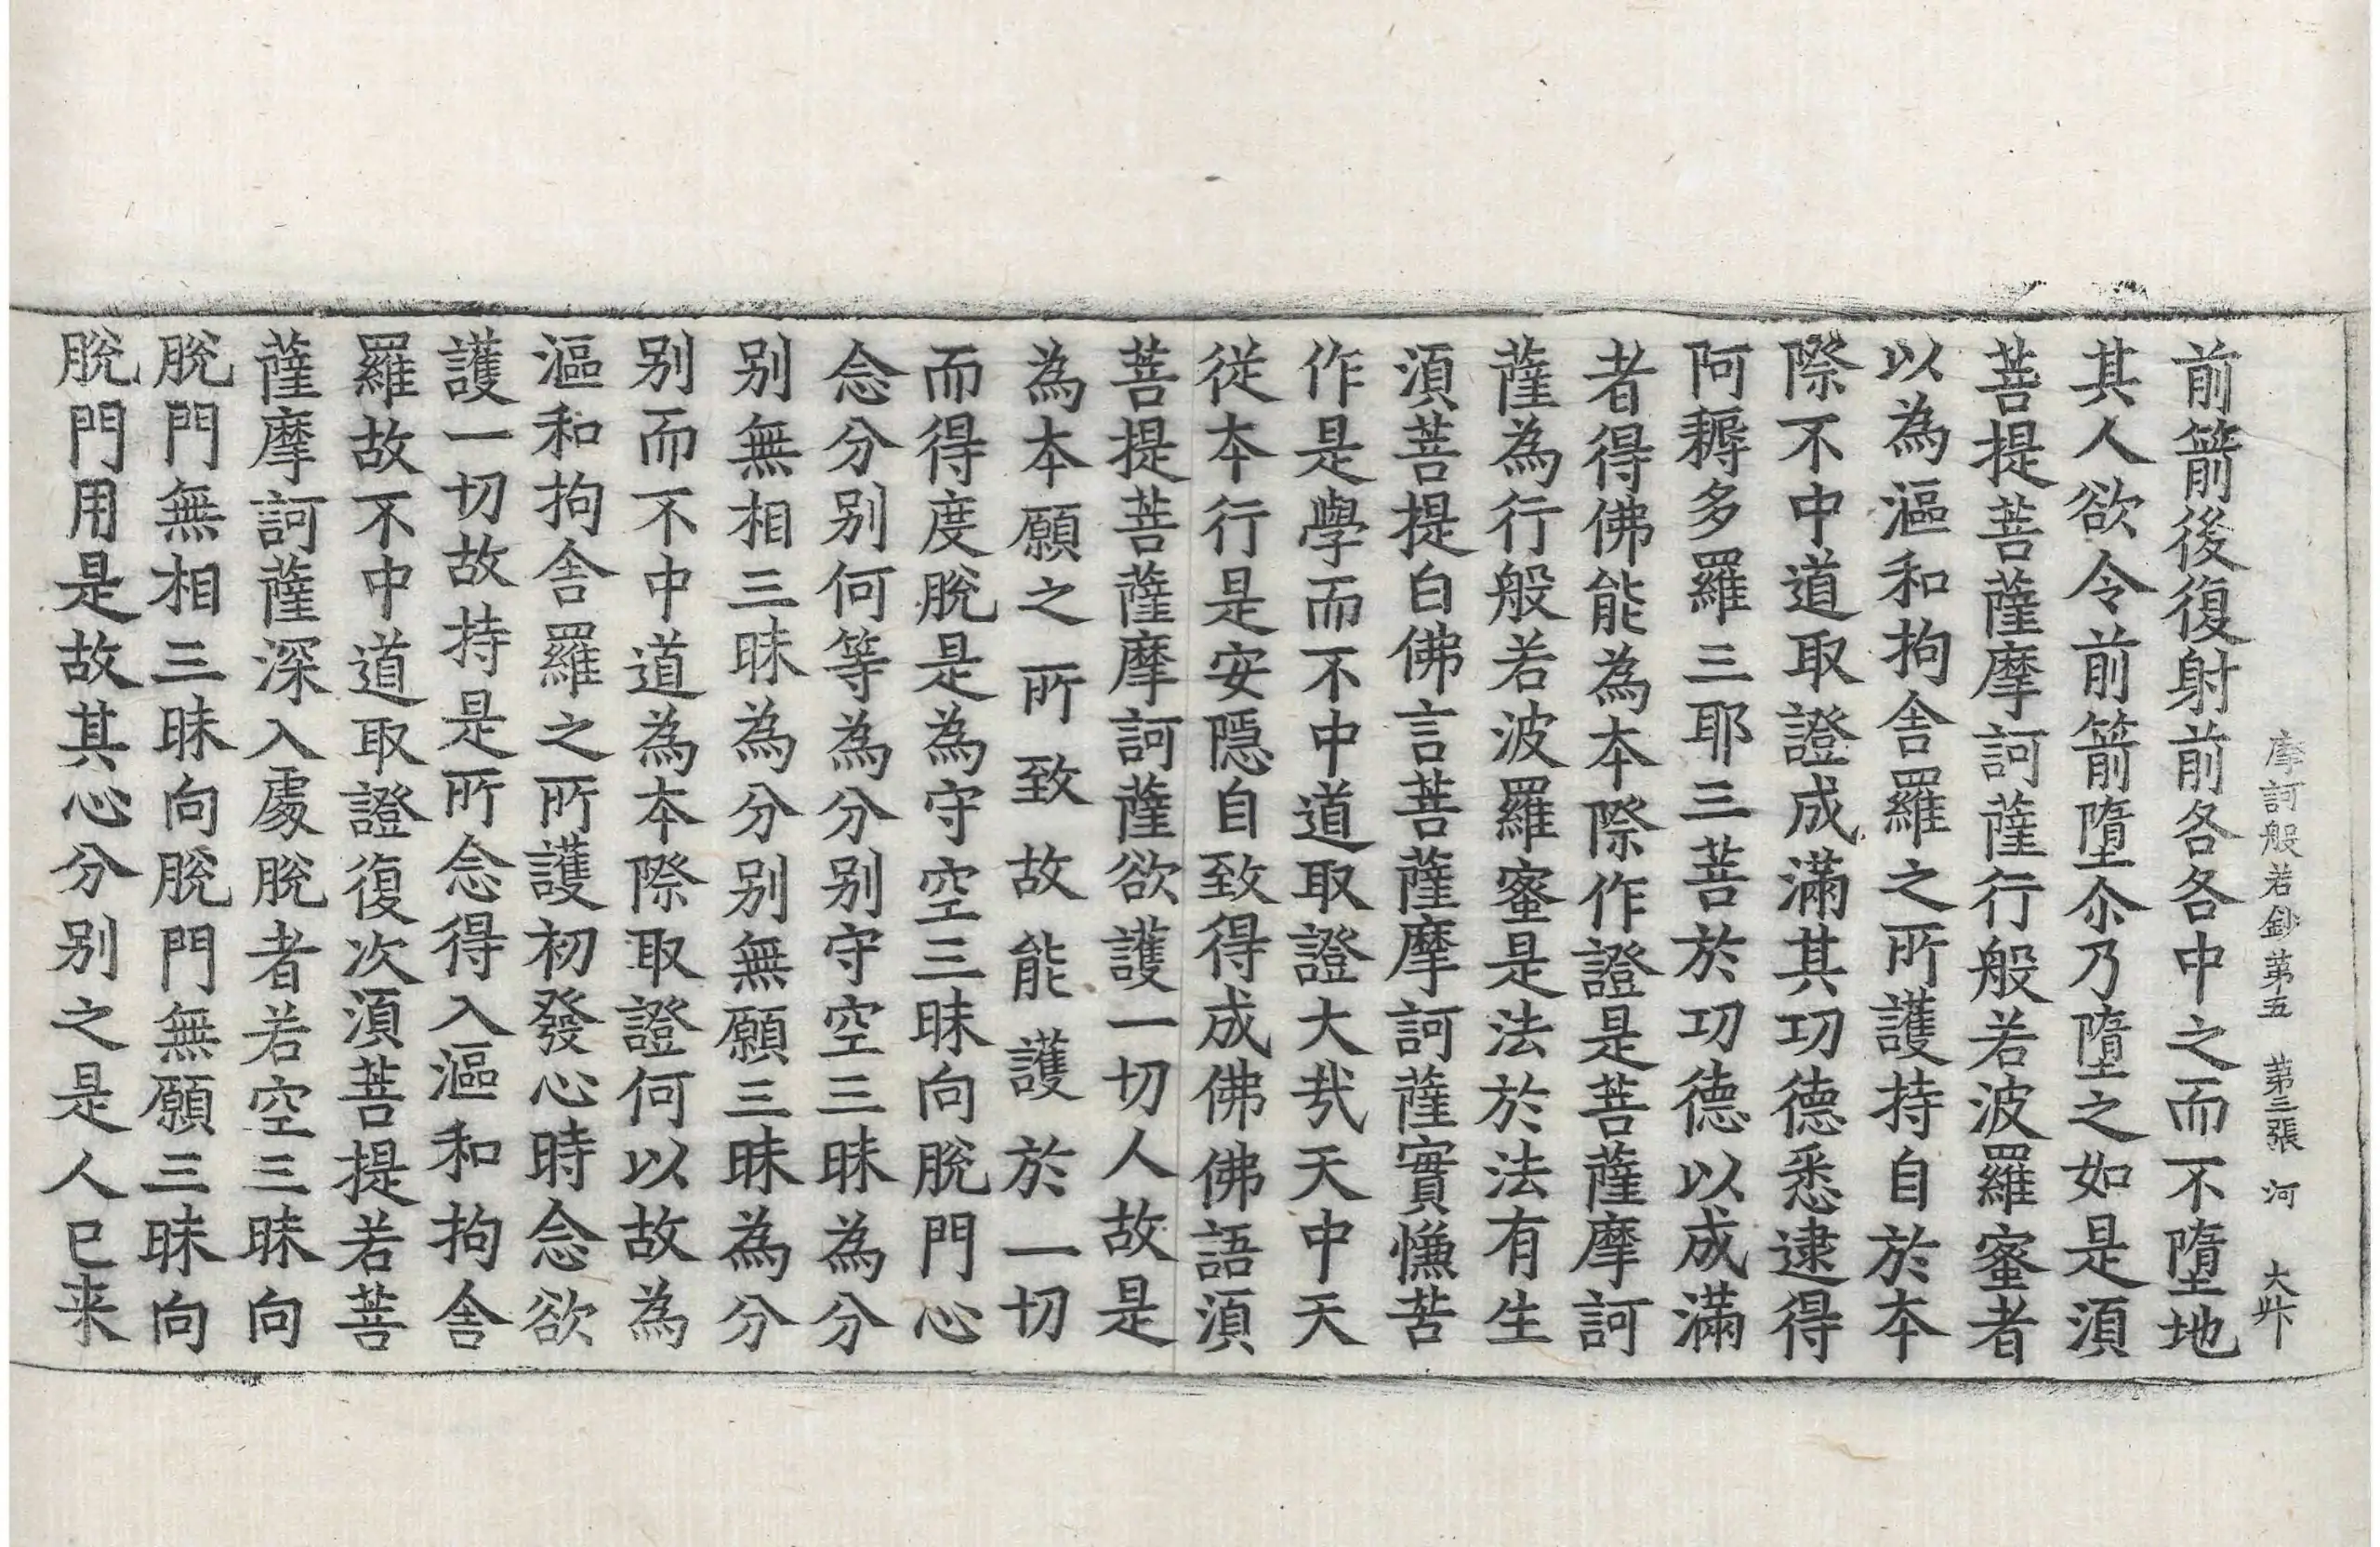 摩訶般若鈔第五　第三張　河　大卄
前箭後復射前各各中之而不墮地
其人欲令前箭墮尒乃墮之如是湏
菩提菩薩摩訶薩行般若波羅蜜者
以為漚和拘舍羅之所護持自於本
際不中道取證成滿其功德悉逮得
阿耨多羅三耶三菩於功德以成滿
者得佛能為本際作證是菩薩摩訶
薩為行般若波羅蜜是法於法有生
湏菩提白佛言菩薩摩訶薩實慊苦
作是學而不中道取證大㢤天中天
從本行是安隱自致得成佛佛語湏
菩提菩薩摩訶薩欲護一切人故是
為本願之所致故能護於一切
而得度脫是為守空三昧向脫門心
念分别何等為分别守空三昧為分
别無相三昧為分别無願三昧為分
别而不中道為本際取證何以故為
漚和拘舍羅之所護初發心時念欲
護一切故持是所念得入漚和拘舍
羅故不中道取證復次湏菩提若菩
薩摩訶薩深入處脫者若空三昧向
脫門無相三昧向脫門無願三昧向
脫門用是故其心分别之是人已来